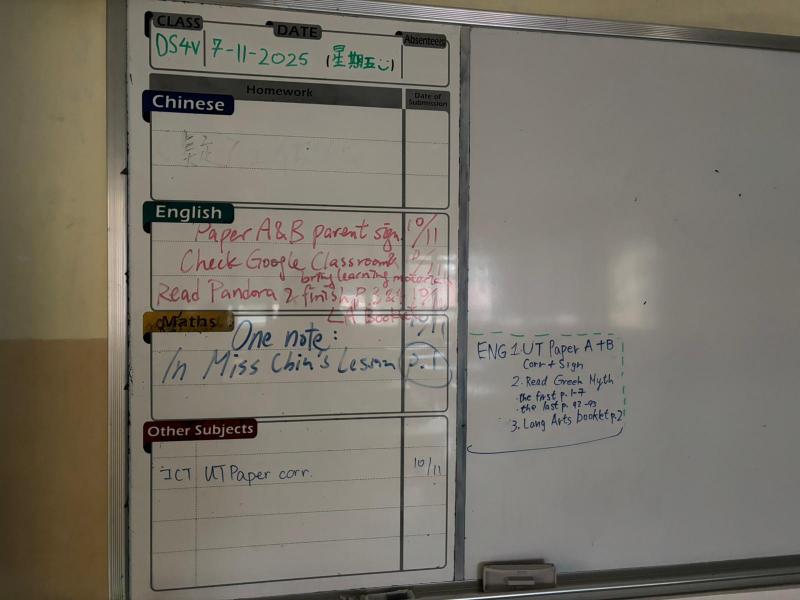 CLASS
DATE
Absentees
DS4V 7-11-2025 (星期五)
Homework
Date of Submission
Chinese
English
Paper A&B parent sign 10/11
Check Google Classroom
bring learning materials
Read Pandora & finish p. 3 &
LA Booklet
Maths
One note: 10/11
In Miss Chin's Lesson p.1
Other Subjects
ICT UT Paper corr. 10/11
ENG 1. UT Paper A+B
Corr + Sign
2. Read Greek Myth
• the first p. 1-7
• the last p. 92-93
3. Lang Arts booklet p.2